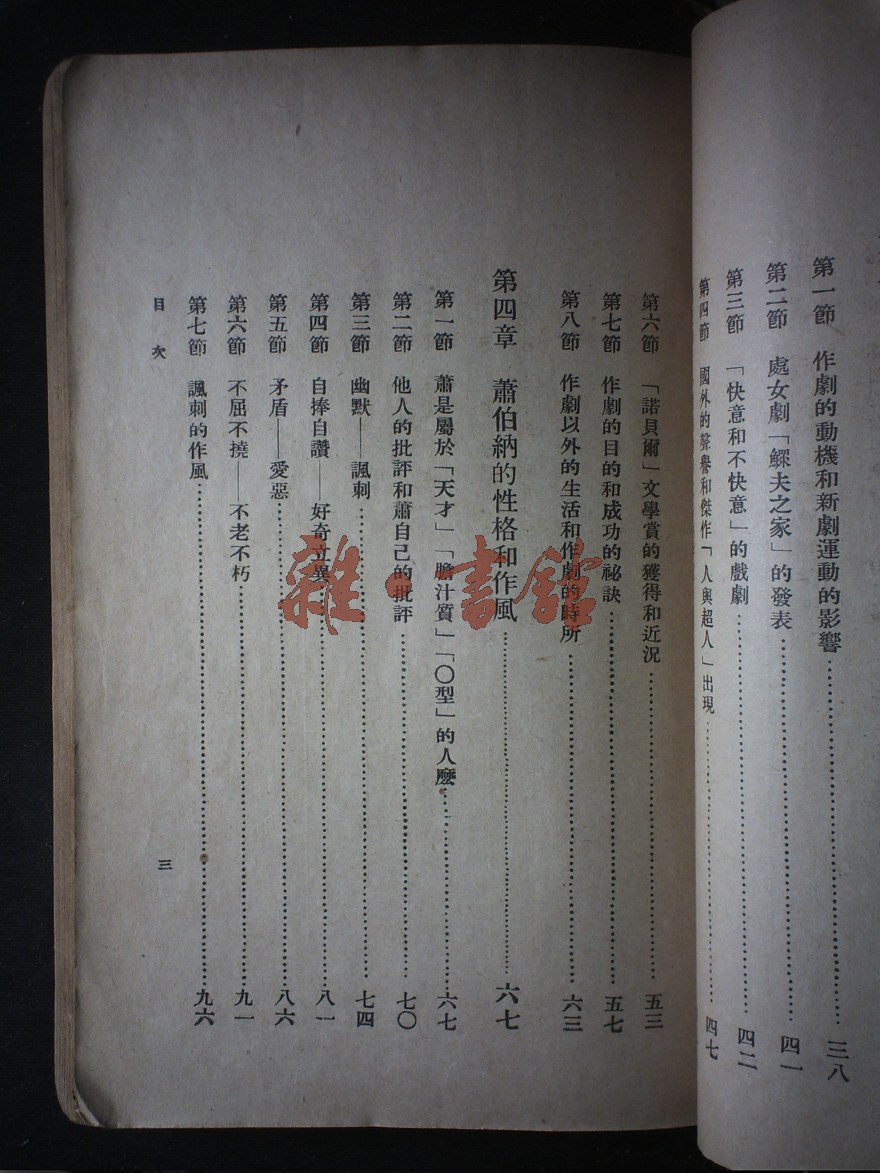 第一節　作劇的動機和新劇運動的影響……三八
第二節　處女劇「鰥夫之家」的發表……四一
第三節　「快意和不快意」的戲劇……四二
第四節　國外的聲譽和傑作「人與超人」出現……四七
第六節　「諾貝爾」文學賞的獲得和近況……五三
第七節　作劇的目的和成功的祕訣……五七
第八節　作劇以外的生活和作劇的時所……六三
第四章　蕭伯納的性格和作風……六七
第一節　蕭是屬於「天才」「膽汁質」「〇型」的人麼……六七
第二節　他人的批評和蕭自己的批評……七〇
第三節　幽默——諷刺……七四
第四節　自捧自讚——好奇立異……八一
第五節　矛盾——愛惡……八六
第六節　不屈不撓——不老不朽……九一
第七節　諷刺的作風……九六
目次　三
雜·書館